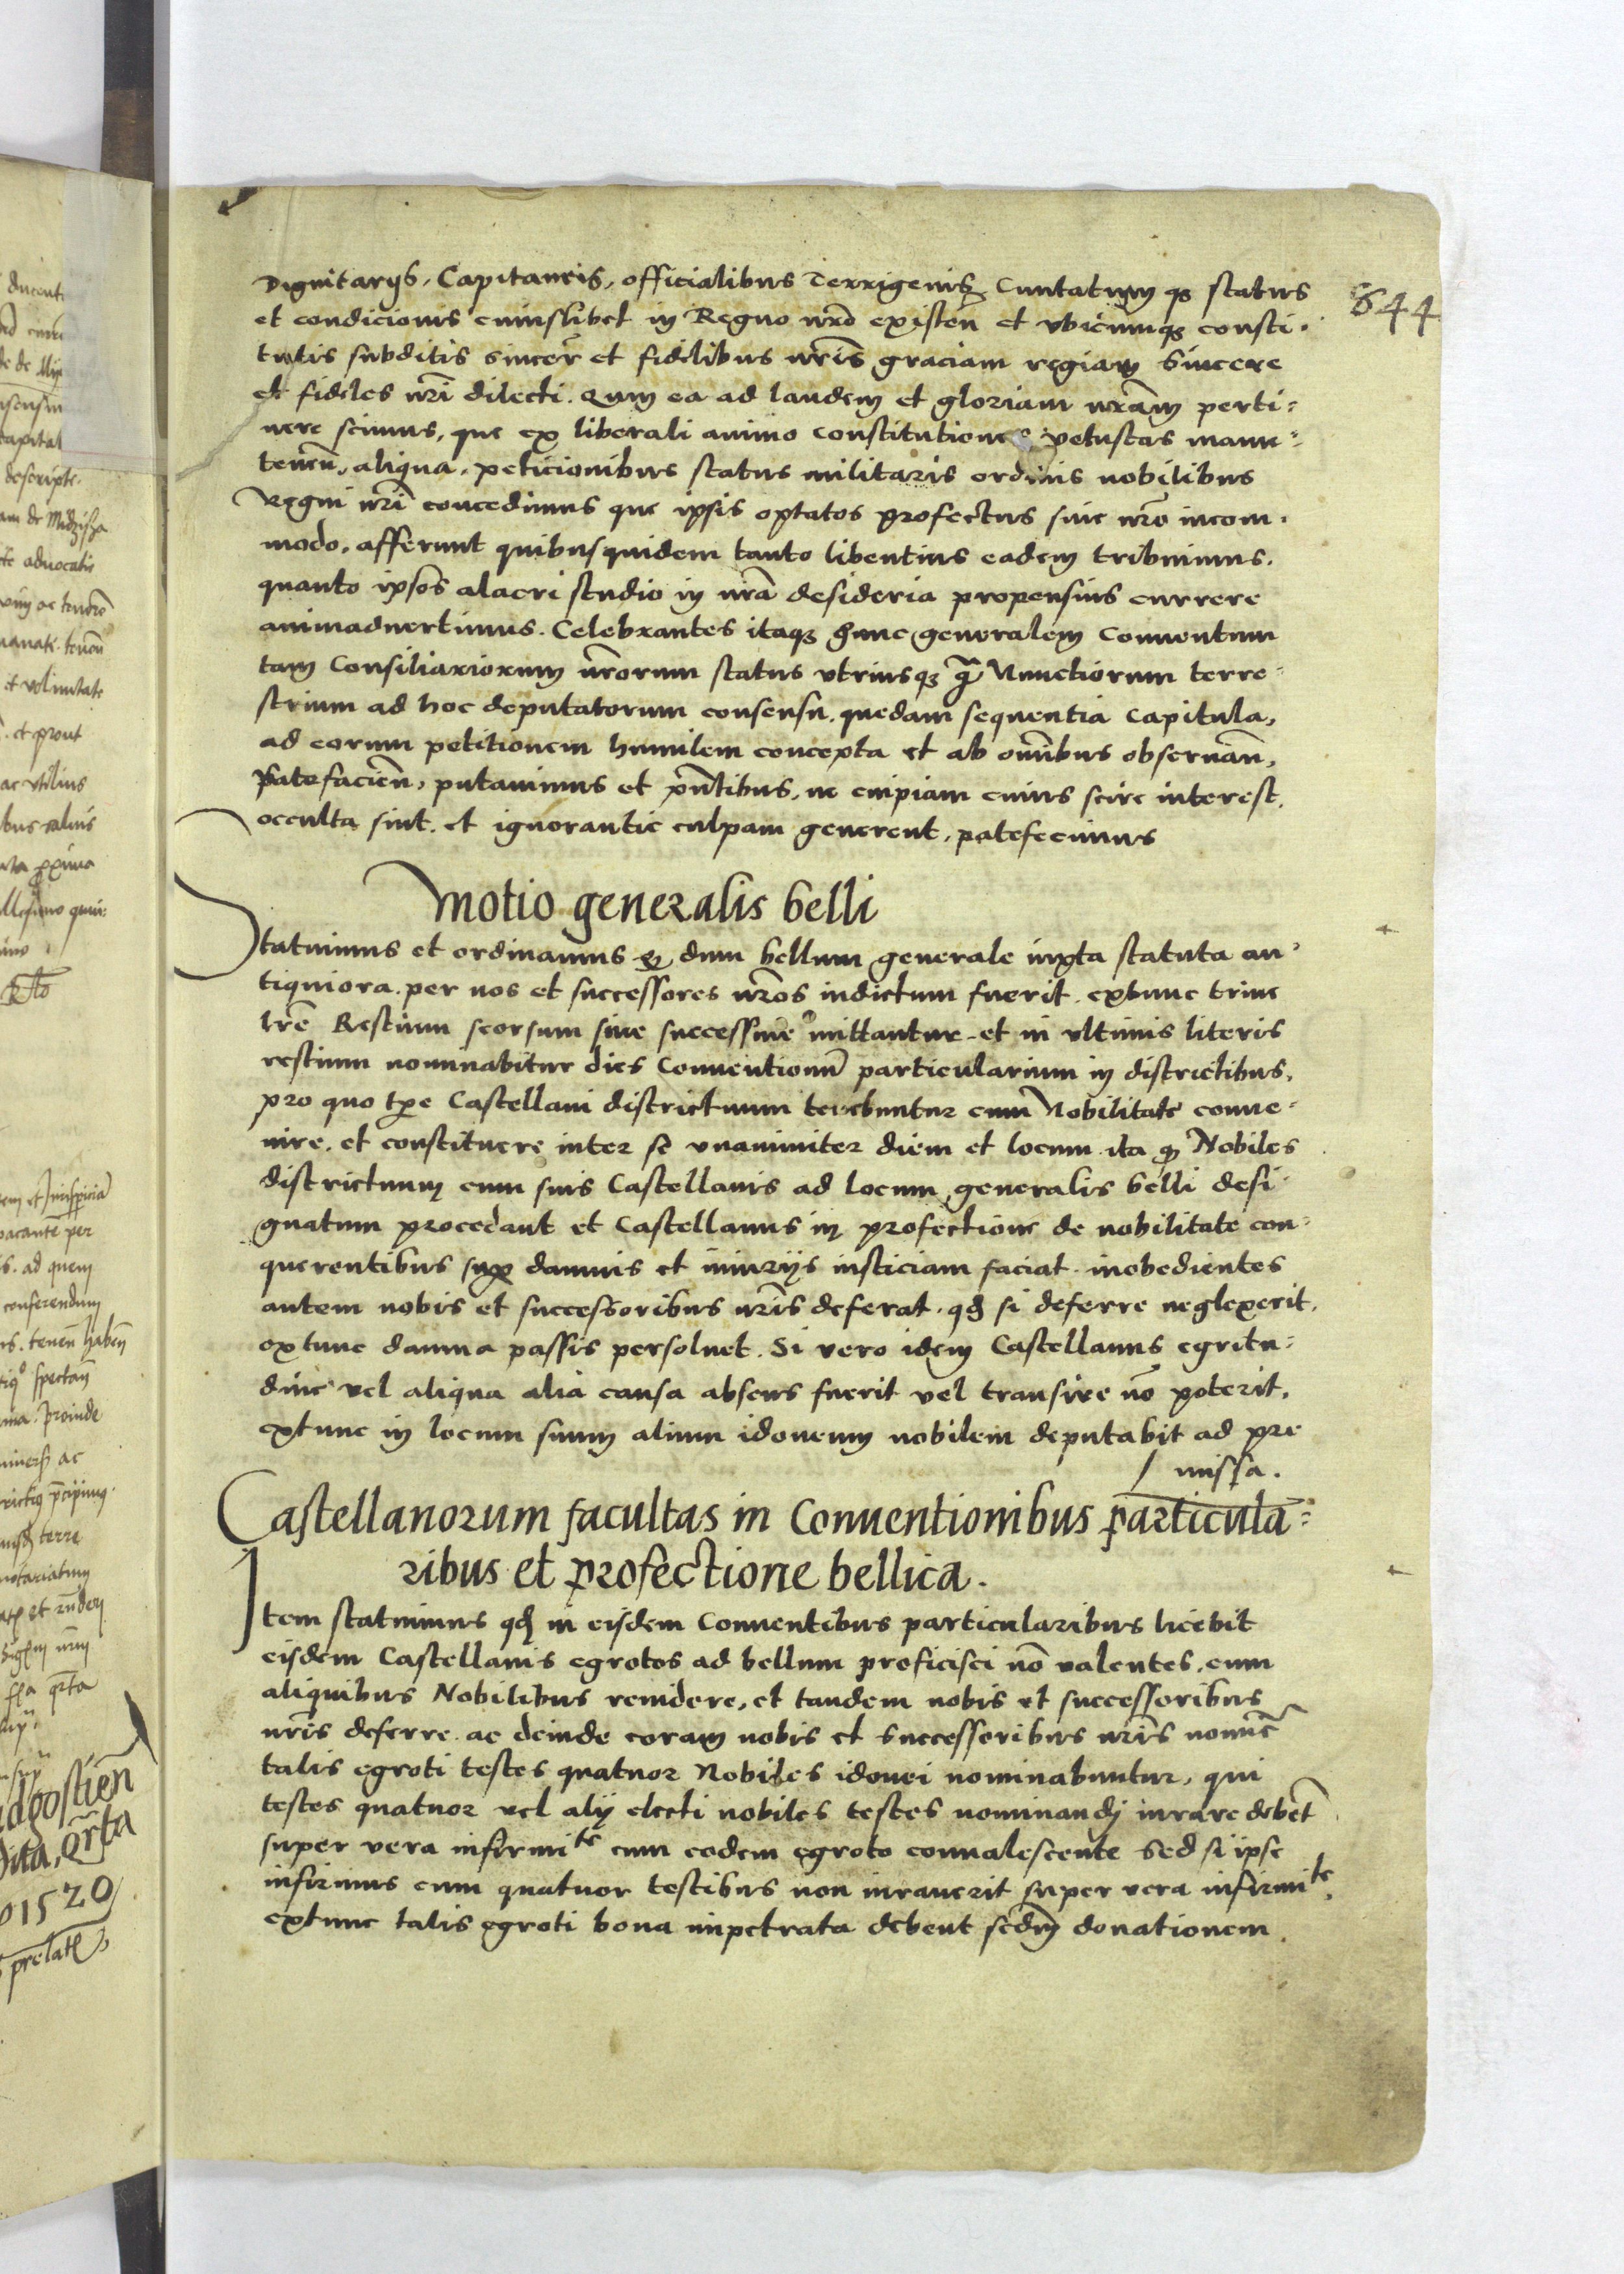 644
Dignitarijs, Capitaneis, officialibus Terrigenis, Ciuitatum qʒ status
et condicionis cuiuslibet in Regno nr̃o existeñ et vbicumqʒ consti-
tutis subditis sincer̃ et fidelibus nr̃is graciam regiam Sincere
et fideles nr̃i dilecti. Qum ea ad laudem et gloriam nr̃am perti=
nere scimus, que ex liberali animo constitutiones vetustas manu=
teneñ, aliqua, peticionibus status militaris ordinis nobilibus
Regni nr̃i concedimus que ipsis optatos profectus sine nr̃o incom-
modo, afferunt quibusquidem tanto libentius eadem tribuimus.
quanto ipsos alacri studio in nr̃a desideria propensius currere
animaduertimus. Celebrantes itaqʒ hunc generalem Conuentum
tam Consiliariorum nr̃orum status vtriusqʒ q̃ Nunctiorum terre-
strium ad hoc deputatorum consensu, quedam sequentia Capitula,
ad eorum petitionem humilem concepta et ab om̃ibus obseruañ,
patefacieñ, putauimus et pñtibus, ne cuipiam cuius scire interest,
occulta sint, et ignorantie culpam generent, patefecimus
Motio generalis belli
Statuimus et ordinamus qͥ dum bellum generale iuxta statuta an-
tiquiora, per nos et successores nr̃os indictum fuerit, extunc trine
lr̃e Restium seorsum siue successiue mittantur et in vltimis literis
restium nominabitur dies Conuentionũ particularium in districtibus,
pro quo tp̃e Castellani districtuum tenebuntur cum Nobilitate conue-
nire, et constituere inter se vnanimiter diem et locum ita qͥ Nobiles
districtuum cum suis Castellanis ad locum generalis belli desi-
gnatum procedant et Castellanus in profectione de nobilitate con-
querentibus sup̱ damnis et iniurijs iusticiam faciat inobedientes
autem nobis et successoribus nr̃is deferat, qđ si deferre neglexerit,
extunc damna passis persoluet. Si vero idem Castellanus egritu=
dine vel aliqua alia causa absens fuerit vel transire nõ poterit,
extunc in locum suum alium idoneum nobilem deputabit ad pre
missa.
Castellanorum facultas in Conuentionibus particula=
ribus et profectione bellica.
Item statuimus qđ in eisdem Conuentibus particularibus licebit
eisdem Castellanis egrotos ad bellum proficisci nõ valentes, cum
aliquibus Nobilibus reuidere, et tandem nobis et successoribus
nr̃is deferre ac deinde coram nobis et Successoribus nr̃is nomĩe
talis egroti testes quatuor Nobiles idonei nominabuntur, qui
testes quatuor vel alij electi nobiles testes nominandj iurare debẽt
super vera infirmiᵗᵉ cum eodem egroto conualescente Sed si ipse
infirmus cum quatuor testibus non iurauerit super vera infirmiᵗᵉ,
extunc talis egroti bona impetrata debent scdm̃ donationem